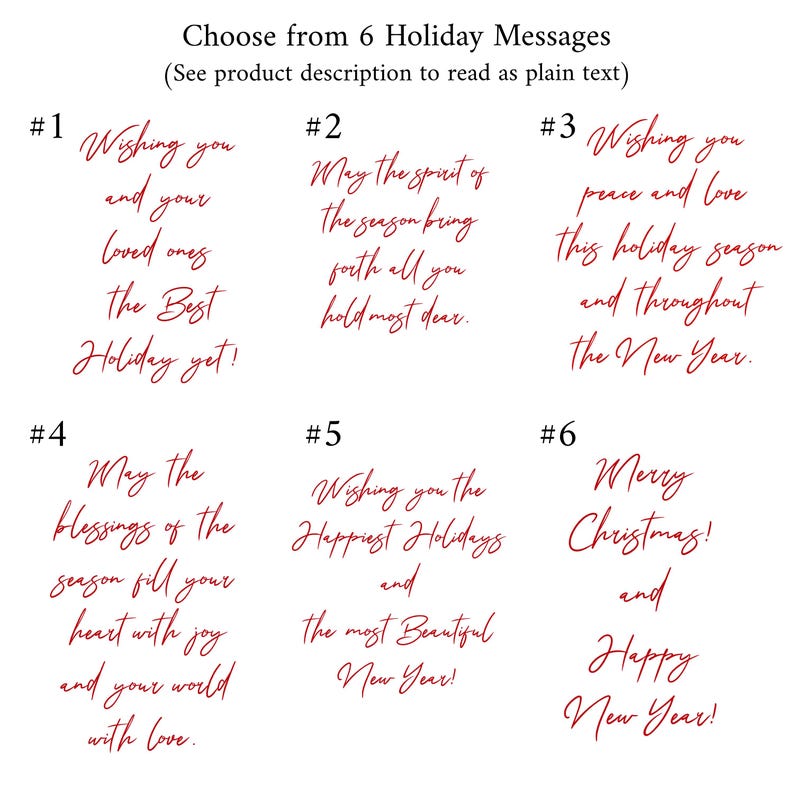 Choose from 6 Holiday Messages
(See product description to read as plain text)
#1
Wishing you
and your
loved ones
the Best
Holiday yet!
#2
May the spirit of
the season bring
forth all you
hold most dear.
#3
Wishing you
peace and love
this holiday season
and throughout
the New Year.
#4
May the
blessings of the
season fill your
heart with joy
and your world
with love.
#5
Wishing you the
Happiest Holidays
and
the most Beautiful
New Year!
#6
Merry
Christmas!
and
Happy
New Year!